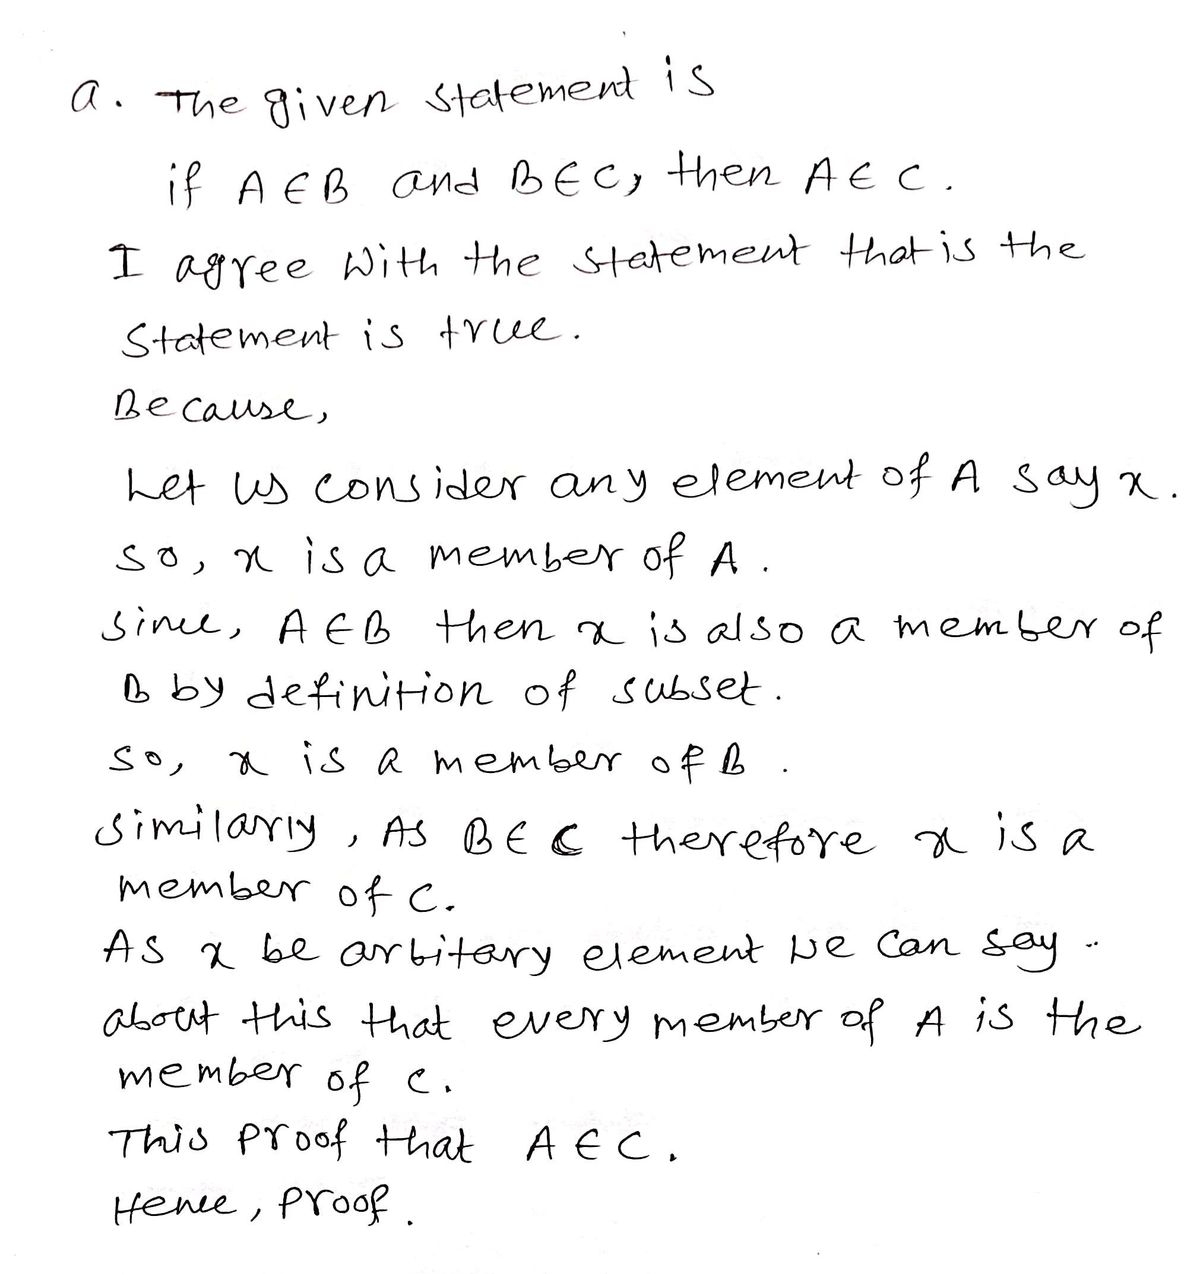 a. The given statement is
if A ∈ B and B ∈ C, then A ∈ C.
I agree with the statement that is the
statement is true.
Because,
Let us consider any element of A say x.
so, x is a member of A.
since, A ∈ B then x is also a member of
B by definition of subset.
so, x is a member of B.
similarly, As B ∈ C therefore x is a
member of C.
As x be arbitary element we can say
about this that every member of A is the
member of C.
This proof that A ∈ C.
Hence, proof.